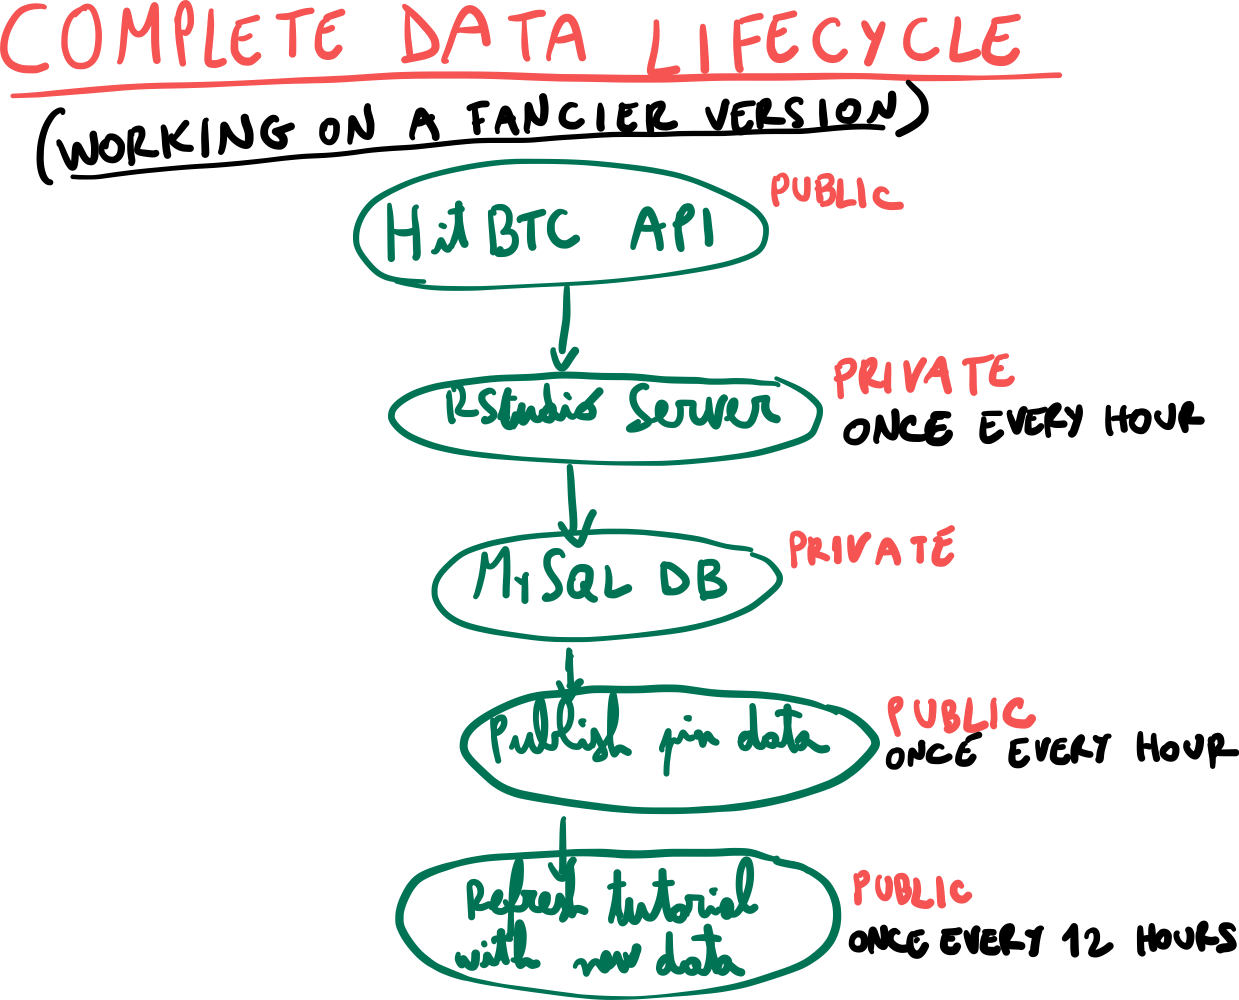 COMPLETE DATA LIFECYCLE
(WORKING ON A FANCIER VERSION)
HitBTC API
PUBLIC
RStudio Server
PRIVATE
ONCE EVERY HOUR
MySQL DB
PRIVATE
Publish pin data
PUBLIC
ONCE EVERY HOUR
Refresh tutorial
with new data
PUBLIC
ONCE EVERY 12 HOURS